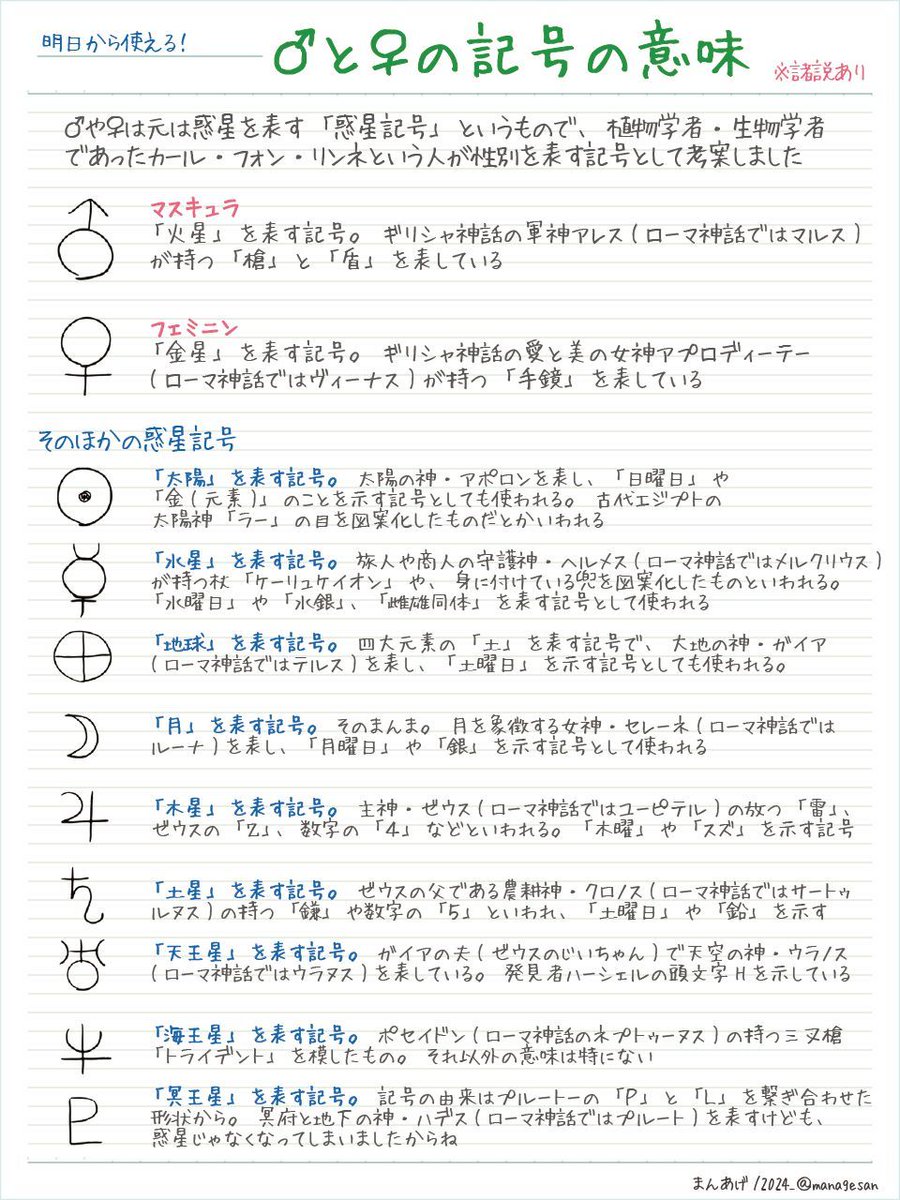 明日から使える!
♂と♀の記号の意味
※諸説あり
♂や♀は元は惑星を表す「惑星記号」というもので、植物学者・生物学者
であったカール・フォン・リンネという人が性別を表す記号として考案しました
マスキュラ
「火星」を表す記号。ギリシャ神話の軍神アレス(ローマ神話ではマルス)
が持つ「槍」と「盾」を表している
フェミニン
「金星」を表す記号。ギリシャ神話の愛と美の女神アプロディーテー
(ローマ神話ではヴィーナス)が持つ「手鏡」を表している
そのほかの惑星記号
「太陽」を表す記号。太陽の神・アポロンを表し、「日曜日」や
「金(元素)」のことを示す記号としても使われる。古代エジプトの
太陽神「ラー」の目を図案化したものだとかいわれる
「水星」を表す記号。旅人や商人の守護神・ヘルメス(ローマ神話ではメルクリウス)
が持つ杖「ケーリュケイオン」や、身に付けている兜を図案化したものといわれる。
「水曜日」や「水銀」、「雌雄同体」を表す記号として使われる
「地球」を表す記号。四大元素の「土」を表す記号で、大地の神・ガイア
(ローマ神話ではテルス)を表し、「土曜日」を示す記号としても使われる。
「月」を表す記号。そのまんま。月を象徴する女神・セレーネ(ローマ神話では
ルーナ)を表し、「月曜日」や「銀」を示す記号として使われる
「木星」を表す記号。主神・ゼウス(ローマ神話ではユーピテル)の放つ「雷」、
ゼウスの「Z」、数字の「4」などといわれる。「木曜」や「スズ」を示す記号
「土星」を表す記号。ゼウスの父である農耕神・クロノス(ローマ神話ではサートゥ
ルヌス)の持つ「鎌」や数字の「5」といわれ、「土曜日」や「鉛」を示す
「天王星」を表す記号。ガイアの夫(ゼウスのじいちゃん)で天空の神・ウラノス
(ローマ神話ではウラヌス)を表している。発見者ハーシェルの頭文字Hを示している
「海王星」を表す記号。ポセイドン(ローマ神話のネプトゥーヌス)の持つ三叉槍
「トライデント」を模したもの。それ以外の意味は特にない
「冥王星」を表す記号。記号の由来はプルートーの「P」と「L」を繋ぎ合わせた
形状から。冥府と地下の神・ハデス(ローマ神話ではプルート)を表すけども、
惑星じゃなくなってしまいましたからね
まんあげ/2024_@managesan